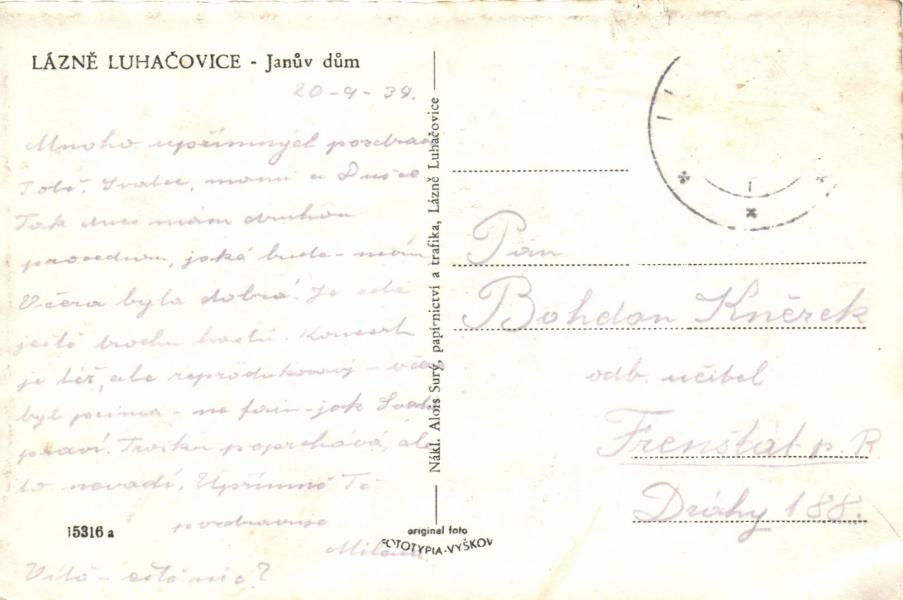 LÁZNĚ LUHAČOVICE - Janův dům
20-9-39.
Mnoho upřímných pozdravů
Tobě, mami a
Tak dnes mám druhou
proceduru, jaká bude - nevím
Včera byla dobrá. Je zde
ještě trochu hostí. Koncert
je též, ale reprodukovaný - včera
byl prima - no fain - jak
praví. Trošku poprchává, ale
to nevadí. Upřímně Tě
pozdravuje
Milena.
Nákl. Alois Surý, papírnictví a trafika, Lázně Luhačovice
Pan
Bohdan Kněrek
odb. učitel
Frenštát p. R
Dráhy 188.
15316 a
original foto
FOTOTYPIA-VYŠKOV